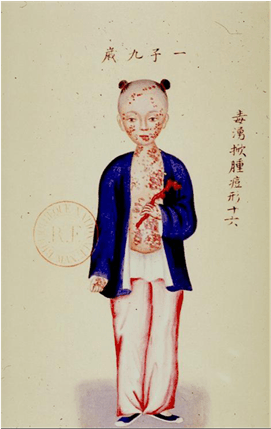 一子九歲
毒湧掀腫痘形十六
R.F